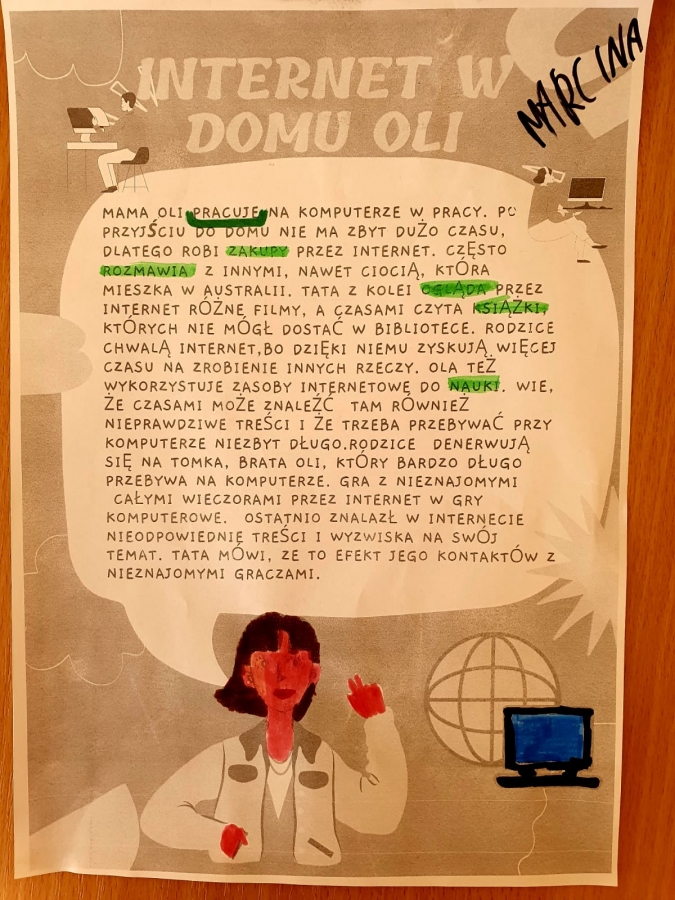 INTERNET W
DOMU OLI
MARCINA
MAMA OLI PRACUJE NA KOMPUTERZE W PRACY. PO
PRZYJŚCIU DO DOMU NIE MA ZBYT DUŻO CZASU,
DLATEGO ROBI ZAKUPY PRZEZ INTERNET. CZĘSTO
ROZMAWIA Z INNYMI, NAWET CIOCIĄ, KTÓRA
MIESZKA W AUSTRALII. TATA Z KOLEI OGLĄDA PRZEZ
INTERNET RÓŻNE FILMY, A CZASAMI CZYTA KSIĄŻKI,
KTÓRYCH NIE MÓGŁ DOSTAĆ W BIBLIOTECE. RODZICE
CHWALĄ INTERNET,BO DZIĘKI NIEMU ZYSKUJĄ WIĘCEJ
CZASU NA ZROBIENIE INNYCH RZECZY. OLA TEŻ
WYKORZYSTUJE ZASOBY INTERNETOWE DO NAUKI. WIE,
ŻE CZASAMI MOŻE ZNALEŹĆ TAM RÓWNIEŻ
NIEPRAWDZIWE TREŚCI I ŻE TRZEBA PRZEBYWAĆ PRZY
KOMPUTERZE NIEZBYT DŁUGO.RODZICE DENERWUJĄ
SIĘ NA TOMKA, BRATA OLI, KTÓRY BARDZO DŁUGO
PRZEBYWA NA KOMPUTERZE. GRA Z NIEZNAJOMYMI
CAŁYMI WIECZORAMI PRZEZ INTERNET W GRY
KOMPUTEROWE. OSTATNIO ZNALAZŁ W INTERNECIE
NIEODPOWIEDNIE TREŚCI I WYZWISKA NA SWÓJ
TEMAT. TATA MÓWI, ZE TO EFEKT JEGO KONTAKTÓW Z
NIEZNAJOMYMI GRACZAMI.